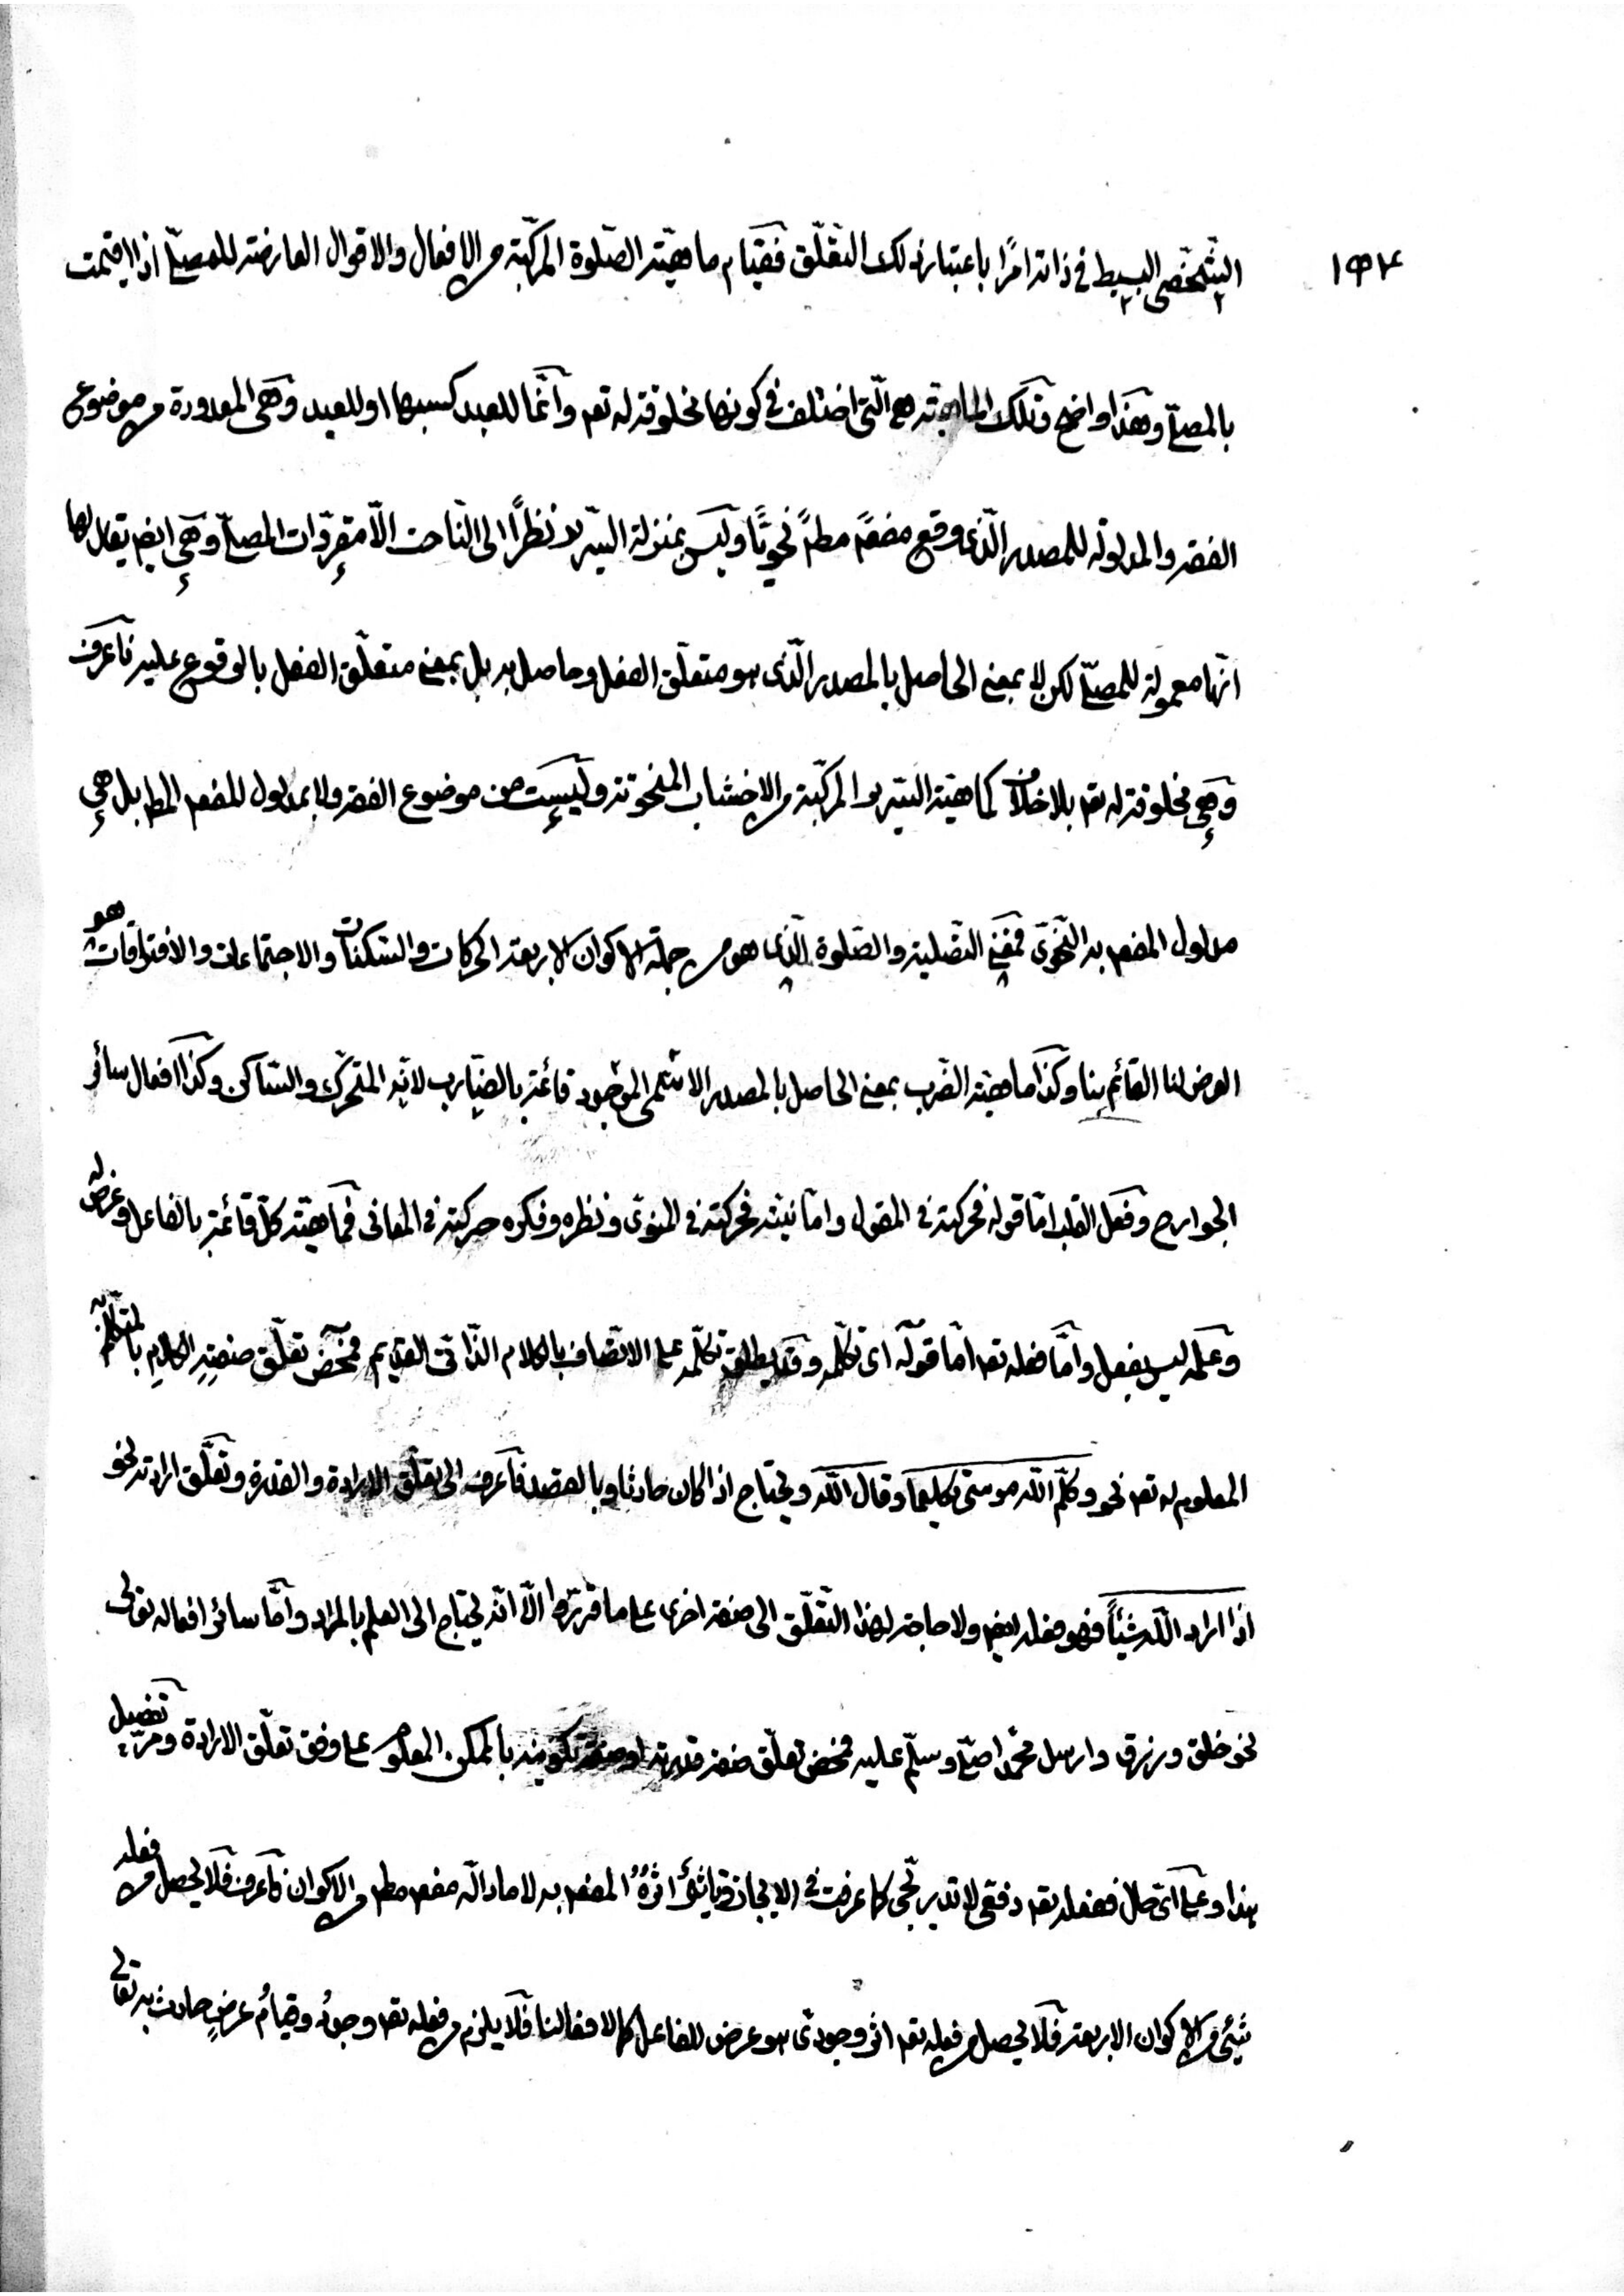 ١٥٢
الشخصى البسيط فى ذاته امرًا باعتبار ذلك التعلّق فقيام ماهيّته الصّلوة المركّبة من الافعال والاقوال العارضة للمصلّى اذا اقيمت
بالمصلّى وهذا واضح وتلك الماهية هى الّتى اختلف فى كونها مخلوقة له تعـ وانّما للعبد كسبها او للعبد وهى المعدودة من موضوع
الفقه والمدلولة للمصدر الّذى وقع مفعـً مطـً نحويًّا وليس بمنزلة السّرير نظرًا الى النّاحت الّا مقرّات المصلّى وهى ايضـ يقال لها
انّها معمولة للمصلّى لكن لا بمعنى الحاصل بالمصدر الّذى هو متعلّق الفعل وحاصل به بل بمعنى متعلّق الفعل بالوقوع عليه فاعرف
وهى مخلوقة له تعـ بلا خلاف كماهيّة السّرير المركّبة من الاخشاب المنحوتة وليست من موضوع الفقه ولا بمدلول للمفعـ المطـ بل هى
مدلول المفعـ به النّحوىّ فمعنى التّصلية والصّلوة الّذى هو من جملة الاكوان الاربعة الحركات والسّكنات والاجتماعات والافتراقات هو
العرض لنا القائم بنا وكذا ماهيّة الضّرب بمعنى الحاصل بالمصدر الاسمى الموجود قائمة بالضّارب لانّه المتحرّك والسّاكن وكذا افعال سائر
الجوارح وفعل القلب امّا قوله فحركته فى المقول وامّا نيّته فحركته فى المنوىّ ونظره وفكره حركته فى المعانى فماهيّة كلّ قائمة بالفاعل وعرض له
وعلمه ليس بفعل وامّا فعله تعـ امّا قوله اى تكلّمه وقد يطلق تكلّمه على الاتّصاف بالكلام الذّاتى القديم فمحض تعلّق صفةِ الكلامِ بالمتكلّم به
المعلوم له تعـ نحو وكلّم اللّه موسى تكليما وقال اللّه ويحتاج اذا كان حادثا وبالقصد فاعرف الى تعلّق الارادة والقدرة وتعلّق ارادته نحو
اذا اراد اللّه شيئاً فهو فعله ايضـ ولا حاجة لهذا التّعلّق الى صفة اخرى على ما قرّروا الّا انّه يحتاج الى العلم بالمراد وامّا سائر افعاله تعالى
نحو خلق ورزق وارسل محمّدا صلّى وسلّم عليه فمحض تعلّق صفة قدرته او صفة تكوينه بالممكن المعلوم على وفق تعلّق الارادة ومرّ تفصيل
هذا وعلى اىّ حال ففعله تعـ دفعى لا تدريجى كما عرفت فى الايجاد وتأثّر اثرهُ المفعـ به لا ما دالّه مفعـ مطـ من الاكوان فاعرف فلا يحصل من فعله
شيئ من الاكوان الاربعة فلا يحصل من فعله تعـ اثر وجودىّ هو عرض للفاعل كما لافعالنا فلا يلزم من فعله تعـ وجودُ وقيامُ عرضٍ حادث به تعالى